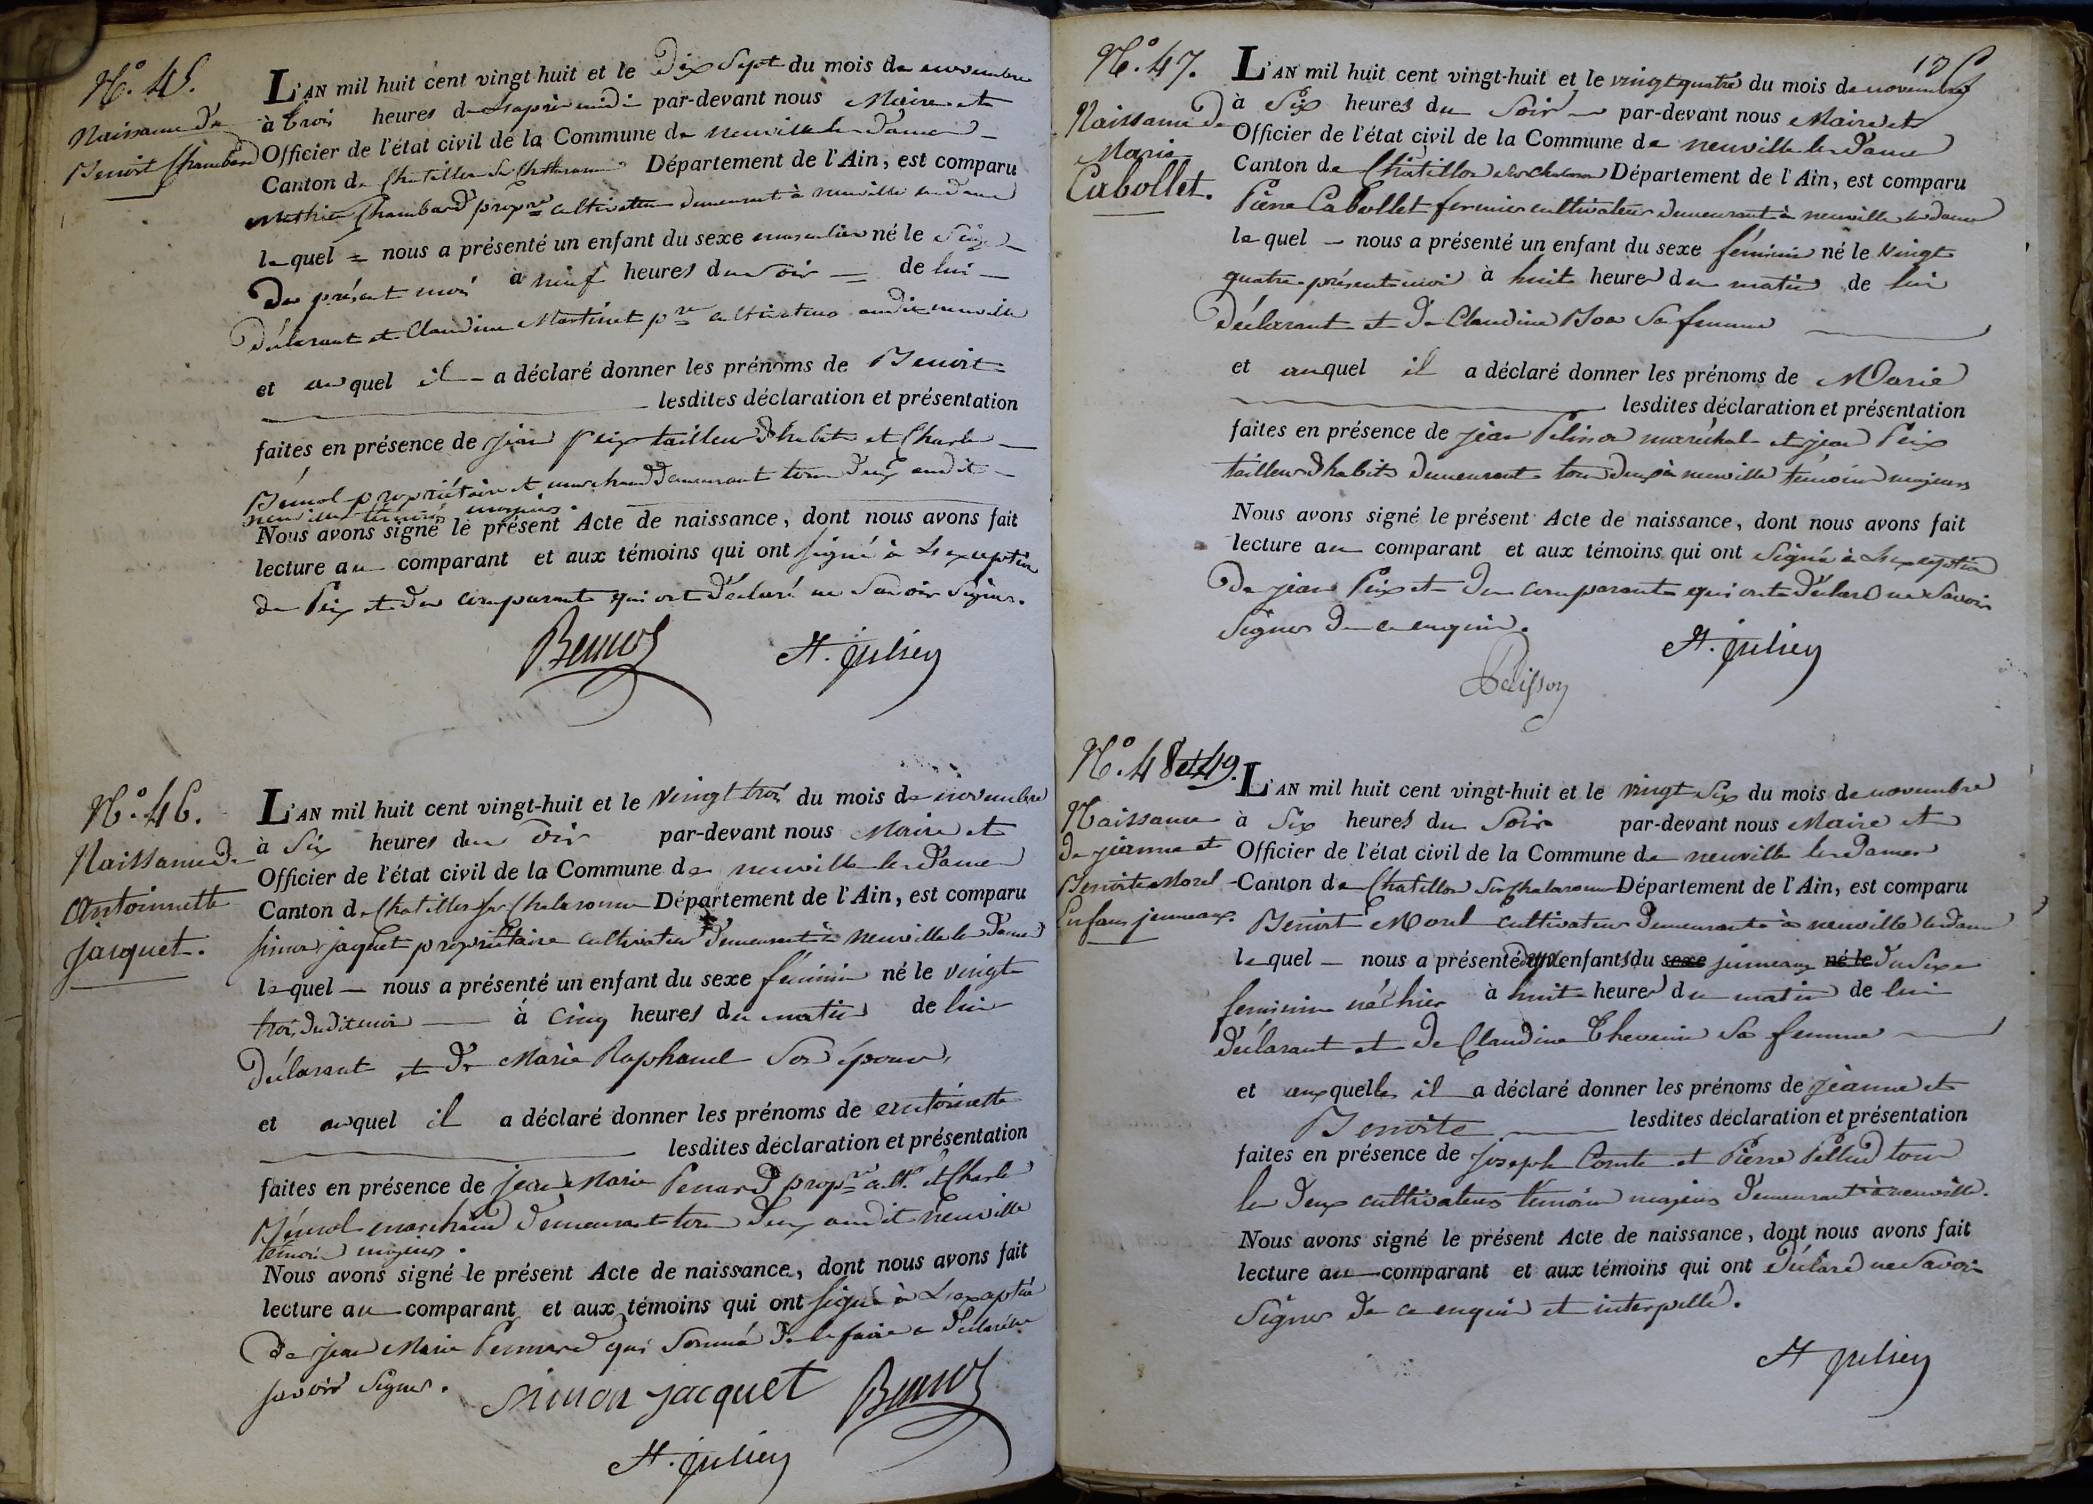 N.° 45.
Naissance de
Benoit Chambard
L'AN mil huit cent vingt-huit et le dix sept du mois de novembre
à trois heures de L'aprés midi par-devant nous Maire et
Officier de l'état civil de la Commune de neuville les dames
Canton de Chatillon Sur Chalaronne Département de l'Ain, est comparu
Mathieu Chambard prop.re cultivateur demeurant à neuville les dames
lequel = nous a présenté un enfant du sexe masculin né le Seize
du présent mois à neuf heures du Soir = de lui
déclarant et Claudine Martinet p.re cultivateurs audit neuville
et auquel il a déclaré donner les prénoms de Benoit
lesdites déclaration et présentation
faites en présence de jean Peix tailleur d'habits et Charle
Bémol propriétaire et marchand demeurant tous deux audit
neuville témoins majeurs.
Nous avons signé le présent Acte de naissance, dont nous avons fait
lecture au comparant et aux témoins qui ont signé à L'exception
de Peix et du comparant qui ont déclaré ne Savoir Signer.
Bemol St. julien
N.° 46.
Naissance de
Antoinette
jacquet.
L'AN mil huit cent vingt-huit et le vingt trois du mois de novembre
à Six heures du Soir par-devant nous Maire et
Officier de l'état civil de la Commune de neuville les dames
Canton de Chatillon sur Chalaronne Département de l'Ain, est comparu
simon jaquet propriétaire cultivateur demeurant à neuville les dames
lequel nous a présenté un enfant du sexe féminin né le vingt
trois dudit mois à cinq heures du matin de lui
déclarant et de Marie Raphanel Son épouse,
et auquel il a déclaré donner les prénoms de antoinette
lesdites déclaration et présentation
faites en présence de jean Marie Penard prop.re cult. et Charle
Bémol marchand demeurant tous deux audit neuville
témoins majeurs.
Nous avons signé le présent Acte de naissance, dont nous avons fait
lecture au comparant et aux témoins qui ont signé à L'exception
de jean Marie Pennard qui Sommé de le faire a déclaré ne
savoir signer.
simon jacquet Bemol
St. julien
N.° 47.
Naissance de
Marie
Cabollet.
L'AN mil huit cent vingt-huit et le vingt quatre du mois de novembre
à Six heures du Soir par-devant nous Maire et
Officier de l'état civil de la Commune de neuville les dames
Canton de Chatillon sur Chalaronne Département de l'Ain, est comparu
Pierre Cabollet fermier cultivateur demeurant à neuville les dames
lequel nous a présenté un enfant du sexe féminin né le vingt
quatre présent mois à huit heures du matin de lui
déclarant et de Claudine Bos Sa femme
et auquel il a déclaré donner les prénoms de Marie
lesdites déclaration et présentation
faites en présence de jean Pelisson maréchal et jean Peix
tailleur d'habits demeurants tous deux à neuville témoins majeurs
Nous avons signé le présent Acte de naissance, dont nous avons fait
lecture au comparant et aux témoins qui ont signé à L'exception
de jean Peix et du comparant qui ont déclaré ne Savoir
Signer de ce enquis.
St. julien
N.° 48 et 49.
Naissance
de jeanne et
Benoite Morel
Enfans jumeaux.
L'AN mil huit cent vingt-huit et le vingt Six du mois de novembre
à Six heures du Soir par-devant nous Maire et
Officier de l'état civil de la Commune de neuville les dames
Canton de Chatillon Sur Chalaronne Département de l'Ain, est comparu
Benoit Morel cultivateur demeurant à neuville les dames
lequel nous a présenté deux enfants du sexe jumeaux né le du Sexe
feminin nés hier à huit heures du matin de lui
déclarant et de Claudine Thevenin Sa femme
et auxquelles il a déclaré donner les prénoms de jeanne et
Benoite lesdites déclaration et présentation
faites en présence de joseph Comte et Pierre Pellud tous
les deux cultivateurs témoins majeurs demeurant à neuville.
Nous avons signé le présent Acte de naissance, dont nous avons fait
lecture au comparant et aux témoins qui ont déclaré ne Savoir
Signer de ce enquis et interpellé.
St julien